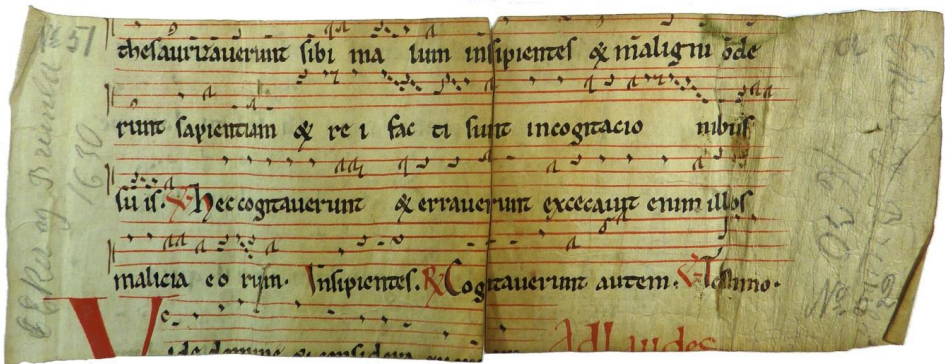 thesaurizauerunt sibi ma lum insipientes & maligni ōde
runt sapientiam & re i fac ti sunt incogitacio nibus
su is. V. Hec cogitauerunt & errauerunt excecauit enim illos
malicia eo rum. Insipientes. R. Cogitauerunt autem. V. T
Ad Laudes
Vide domine & considera
Nº 51
1630
1630
Nº